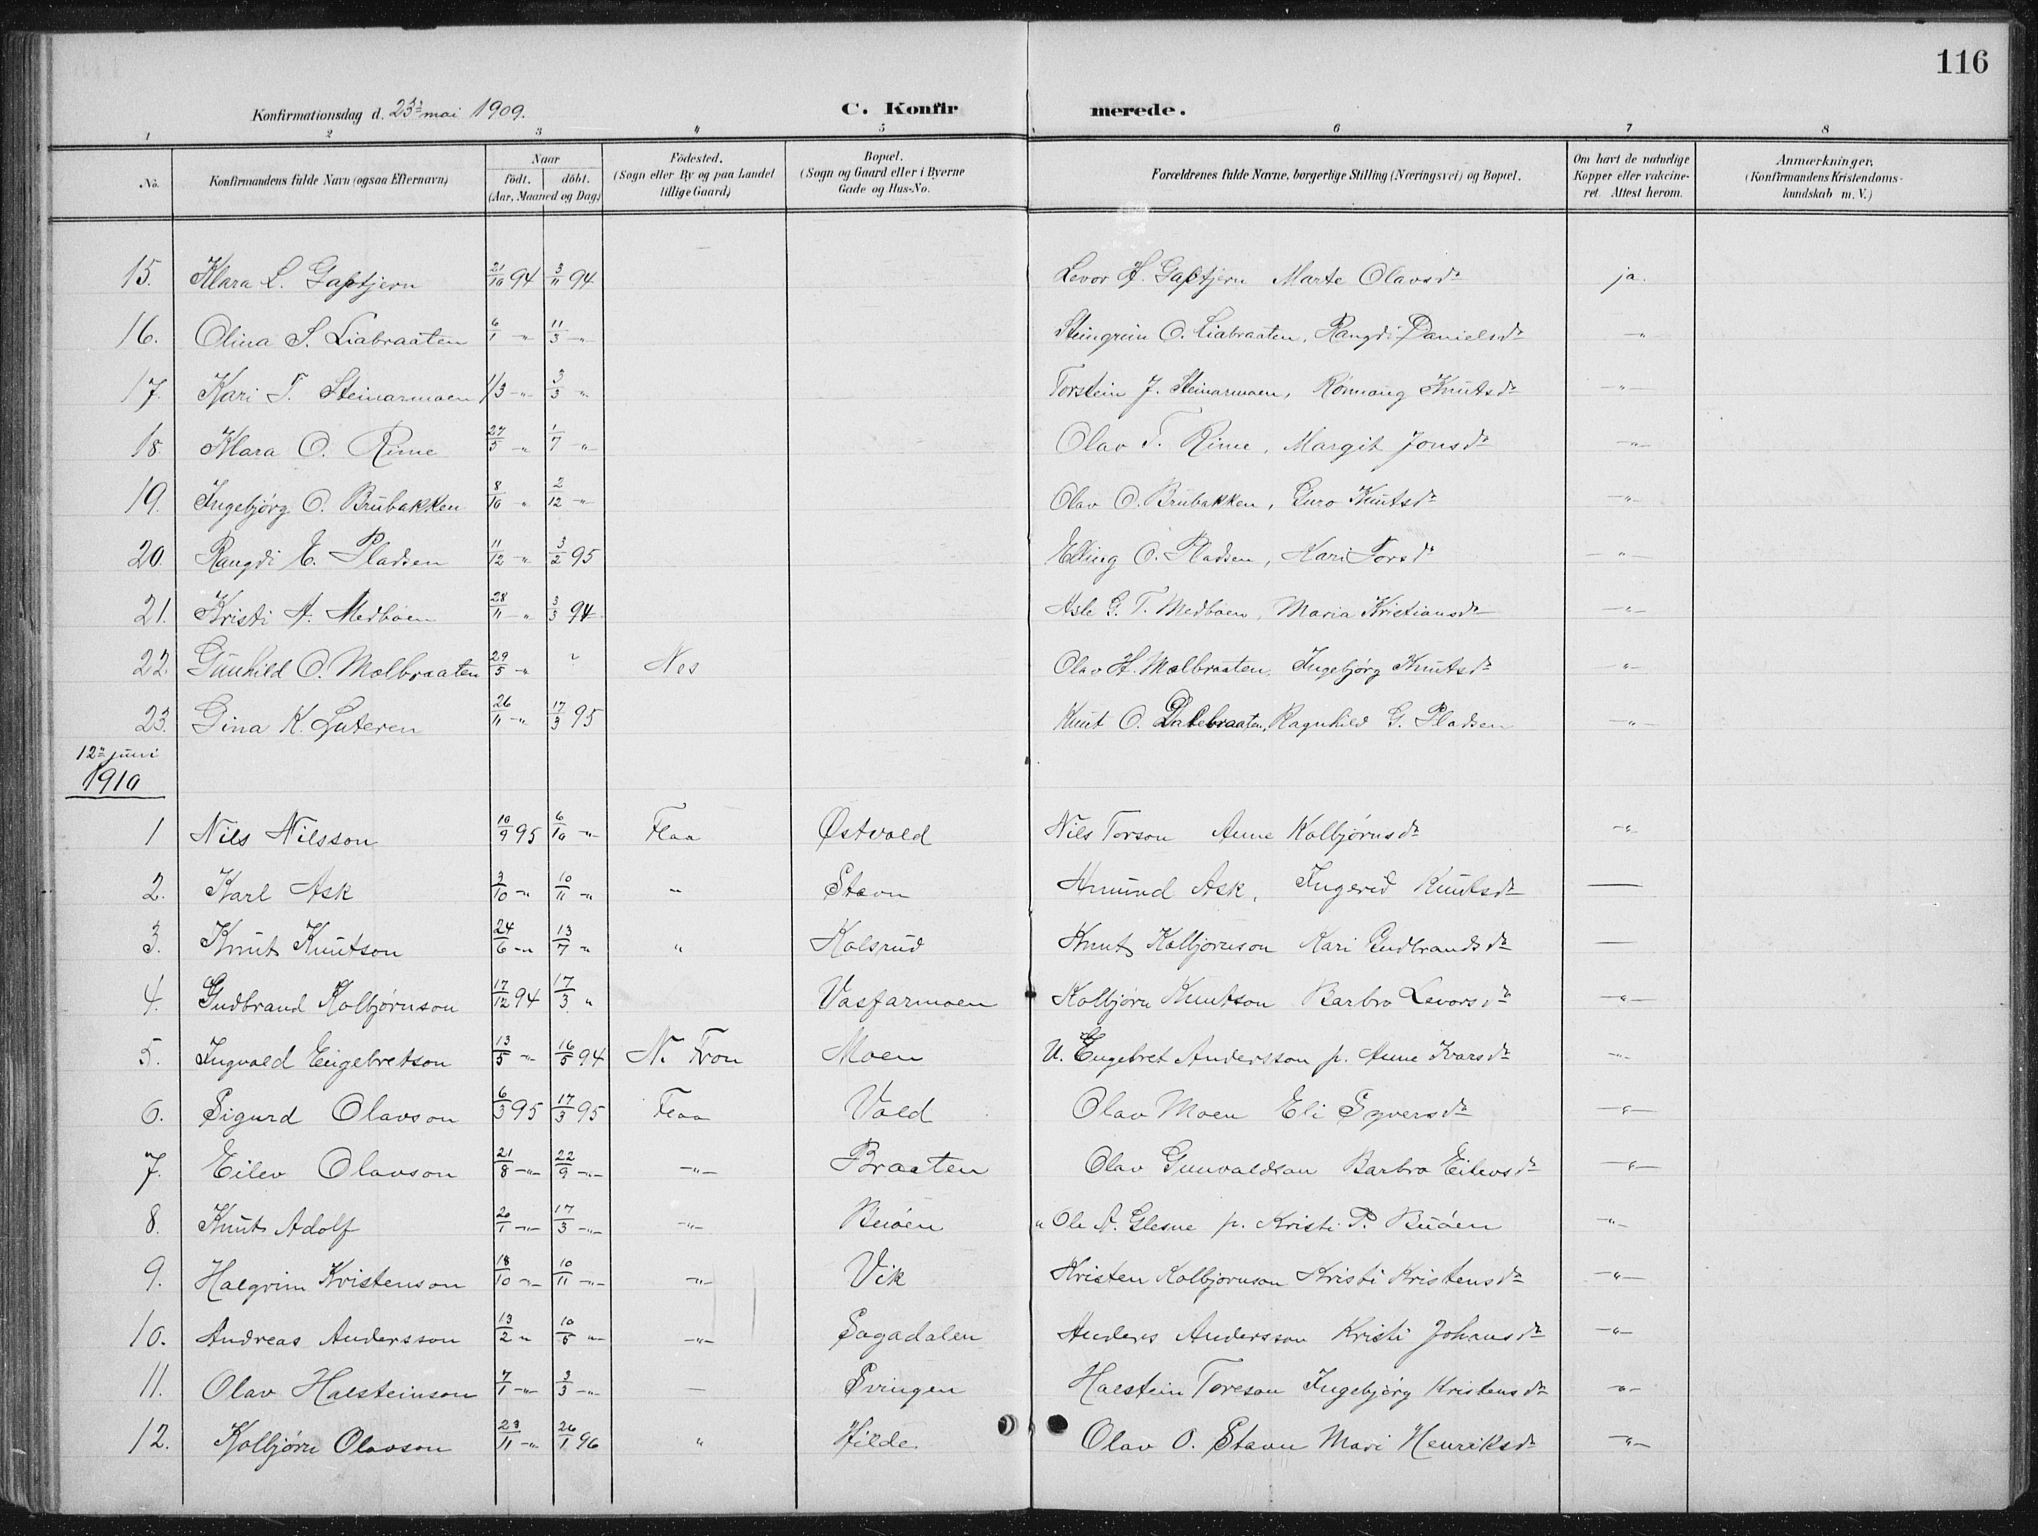 116
Konfirmationsdag d. 23de mai 1909. C. Konfir merede.
1 2 3 4 5 6 7 8
No. Konfirmandens fulde Navn (ogsaa Efternavn) Naar födt. döbt. (Aar, Maaned og Dag) Födested. (Sogn eller By og paa Landet tillige Gaard) Bopæl. (Sogn og Gaard eller i Byerne Gade og Hus-No. Forældrenes fulde Navne, borgerlige Stilling (Næringsvei) og Bopæl. Om havt de naturlige Kopper eller vakcineret. Attest herom. Anmærkninger. (Konfirmandens Kristendomskundskab m. V.)
15. Klara L. Gaptjern 21/10 94 3/11 94 Levor H. Gaptjern Marte Olavsdr ja.
16. Olina S. Liabraaten 6/1 -"- 11/3 -"- Steingrim O. Liabraaten, Rangdi Danielsdr "
17. Kari T. Steinarmoen 1/3 -"- 3/3 " Torstein J. Steinarmoen, Rönnaug Knutsdr -"-
18. Klara O. Rime 27/5 -"- 1/7 " Olav T. Rime, Margit Jonsdr -"-
19. Ingebjørg O. Brubakken 8/10 " 2/12 -"- Olav O. Brubakken, Guro Knutsdr -"-
20. Rangdi E. Pladsen 11/12 " 3/2 95 Elling O. Pladsen, Kari Torsdr -"-
21. Kristi A. Medboen 28/11 -"- 3/3 94 Asle G. T. Medboen, Maria Kristiansdr -"-
22 Gunhild O. Mælbraaten 29/5 -"- " Nes Olav H. Mælbraaten, Ingebjørg Knutsdr -"-
23. Gina K. Luteren 26/11 -"- 17/3 95 Knut O. Dalebraaten, Ragnhild G. Pladsen -"-
12te juni
1910
1 Nils Nilsson 10/9 95 6/10 -"- Flaa Østvold Nils Torson Anne Kolbjørnsdr -"-
2. Karl Ask 3/10 -"- 10/11 -"- " Stavn Amund Ask, Ingerid Knutsdr —
3. Knut Knutson 24/6 -"- 13/7 " " Kolsrud Knut Kolbjørnson Kari Gudbrandsdr —
4. Gudbrand Kolbjørnson 17/12 94 17/3 " Vasfarmoen Kolbjørn Knutson Barbro Levorsdr -"-
5. Ingvald Engebretson 13/5 -"- 16/5 94 N. Fron Moen U. Engebret Andersson p. Anne Ivarsdr -"-
6. Sigurd Olavson 6/3 95 17/3 95 Flaa Vold Olav Moen Eli Syversdr -"-
7. Eilev Olavson 21/8 -"- 22/9 -"- -"- Braaten Olav Gunvaldson Barbro Eilevsdr -"-
8. Knut Adolf 26/1 -"- 17/3 -"- -"- Buöen " Ole A. Glesne p. Kristi P. Buöen -"-
9. Halgrim Kristenson 18/10 -"- 10/11 -"- -"- Vik Kristen Kolbjørnson Kristi Kristensdr -"-
10. Andreas Andersson 13/2 " 10/5 -"- -"- Sagadalen Anders Andersson Kristi Johansdr -"-
11. Olav Halsteinson 7/1 -"- 3/3 -"- — Svingen Halstein Toreson Ingebjørg Kristensdr -"-
12. Kolbjørn Olavson 23/11 -"- 26/1 96 " Hilde Olav O. Stavn Mari Henriksdr -"-